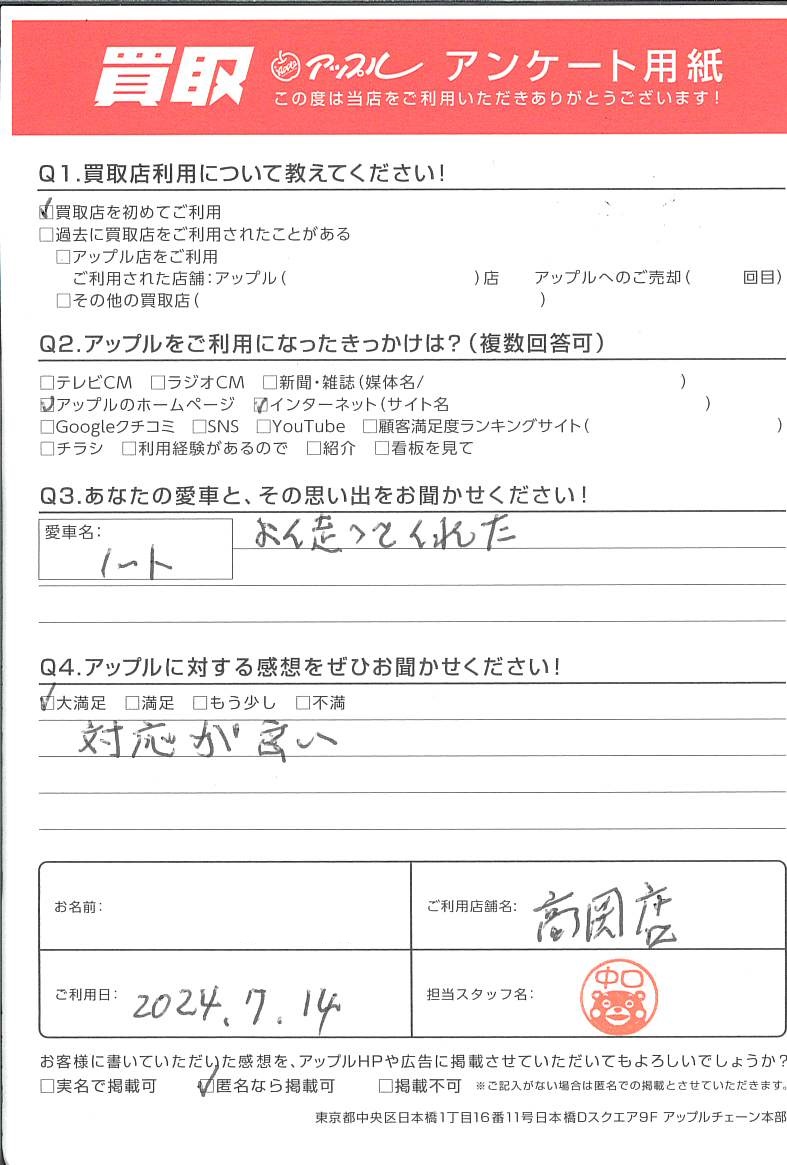 買取 Apple アップル アンケート用紙
この度は当店をご利用いただきありがとうございます!
Q1.買取店利用について教えてください!
☑買取店を初めてご利用
□過去に買取店をご利用されたことがある
□アップル店をご利用
ご利用された店舗:アップル( )店 アップルへのご売却( 回目)
□その他の買取店( )
Q2.アップルをご利用になったきっかけは?(複数回答可)
□テレビCM □ラジオCM □新聞・雑誌(媒体名/ )
☑アップルのホームページ ☑インターネット(サイト名 )
□Googleクチコミ □SNS □YouTube □顧客満足度ランキングサイト( )
□チラシ □利用経験があるので □紹介 □看板を見て
Q3.あなたの愛車と、その思い出をお聞かせください!
愛車名:
ノート
よく走ってくれた
Q4.アップルに対する感想をぜひお聞かせください!
☑大満足 □満足 □もう少し □不満
対応が良い
お名前:
ご利用店舗名: 高岡店
ご利用日: 2024.7.14
担当スタッフ名: 中口
お客様に書いていただいた感想を、アップルHPや広告に掲載させていただいてもよろしいでしょうか?
□実名で掲載可 ☑匿名なら掲載可 □掲載不可 ※ご記入がない場合は匿名での掲載とさせていただきます。
東京都中央区日本橋1丁目16番11号日本橋Dスクエア9F アップルチェーン本部